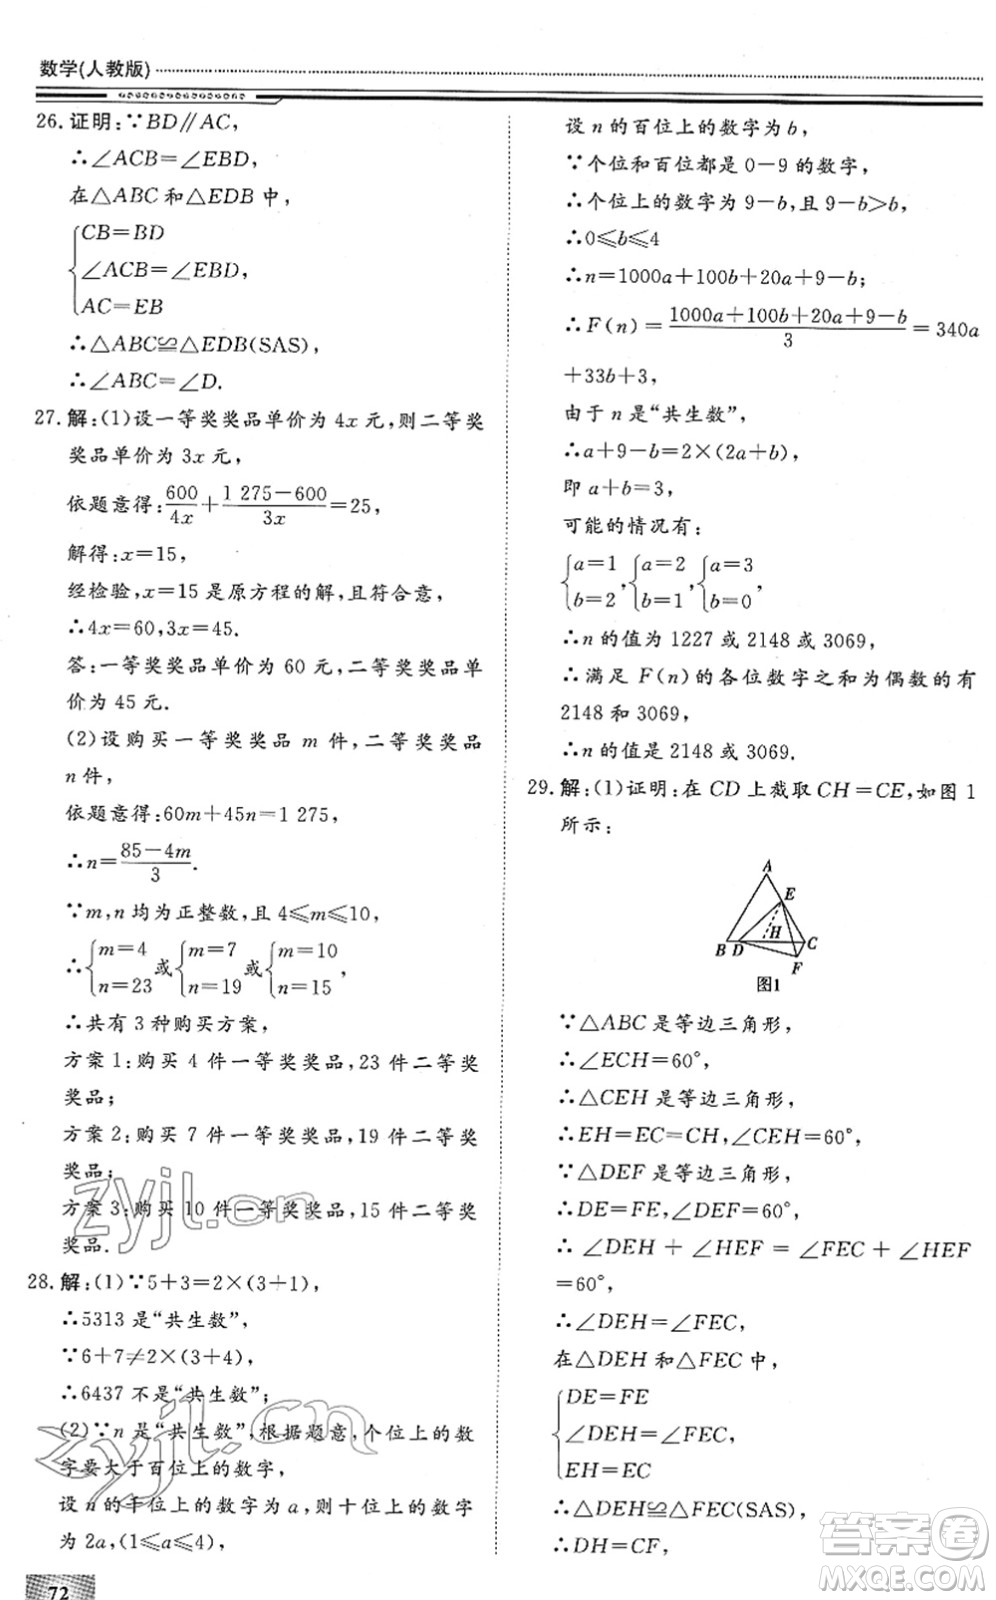 数学(人教版)
26. 证明:∵BD∥AC,
∴∠ACB=∠EBD,
在△ABC 和△EDB 中,
CB=BD
∠ACB=∠EBD,
AC=EB
∴△ABC≌△EDB(SAS),
∴∠ABC=∠D.
27. 解:(1)设一等奖奖品单价为 4x 元,则二等奖
奖品单价为 3x 元,
依题意得:600/4x+(1 275-600)/3x=25,
解得:x=15,
经检验,x=15 是原方程的解,且符合意,
∴4x=60,3x=45.
答:一等奖奖品单价为 60 元,二等奖奖品单
价为 45 元.
(2)设购买一等奖奖品 m 件,二等奖奖品
n 件,
依题意得:60m+45n=1 275,
∴n=(85-4m)/3.
∵m,n 均为正整数,且 4≤m≤10,
∴{m=4 n=23 或{m=7 n=19 或{m=10 n=15 ,
∴共有 3 种购买方案,
方案 1:购买 4 件一等奖奖品,23 件二等奖
奖品;
方案 2:购买 7 件一等奖奖品,19 件二等奖
奖品;
方案 3:购买 10 件一等奖奖品,15 件二等奖
奖品.
28. 解:(1)∵5+3=2×(3+1),
∴5313 是“共生数”;
∵6+7≠2×(3+4),
∴6437 不是“共生数”;
(2)∵n 是“共生数”,根据题意,个位上的数
字要大于百位上的数字,
设 n 的千位上的数字为 a,则十位上的数字
为 2a,(1≤a≤4),
72
设 n 的百位上的数字为 b,
∵个位和百位都是 0-9 的数字,
∴个位上的数字为 9-b,且 9-b>b,
∴0≤b≤4
∴n=1000a+100b+20a+9-b;
∴F(n)=(1000a+100b+20a+9-b)/3=340a
+33b+3,
由于 n 是“共生数”,
∴a+9-b=2×(2a+b),
即 a+b=3,
可能的情况有:
{a=1 b=2,{a=2 b=1,{a=3 b=0,
∴n 的值为 1227 或 2148 或 3069,
∴满足 F(n)的各位数字之和为偶数的有
2148 和 3069,
∴n 的值是 2148 或 3069.
29. 解:(1)证明:在 CD 上截取 CH=CE,如图 1
所示:
A
E
H
B D C
F
图1
∵△ABC 是等边三角形,
∴∠ECH=60°,
∴△CEH 是等边三角形,
∴EH=EC=CH,∠CEH=60°,
∵△DEF 是等边三角形,
∴DE=FE,∠DEF=60°,
∴∠DEH+∠HEF=∠FEC+∠HEF
=60°,
∴∠DEH=∠FEC,
在△DEH 和△FEC 中,
DE=FE
∠DEH=∠FEC,
EH=EC
∴△DEH≌△FEC(SAS),
∴DH=CF,
zyjl.cn
zyjl.cn
答案圈
MXQE.COM